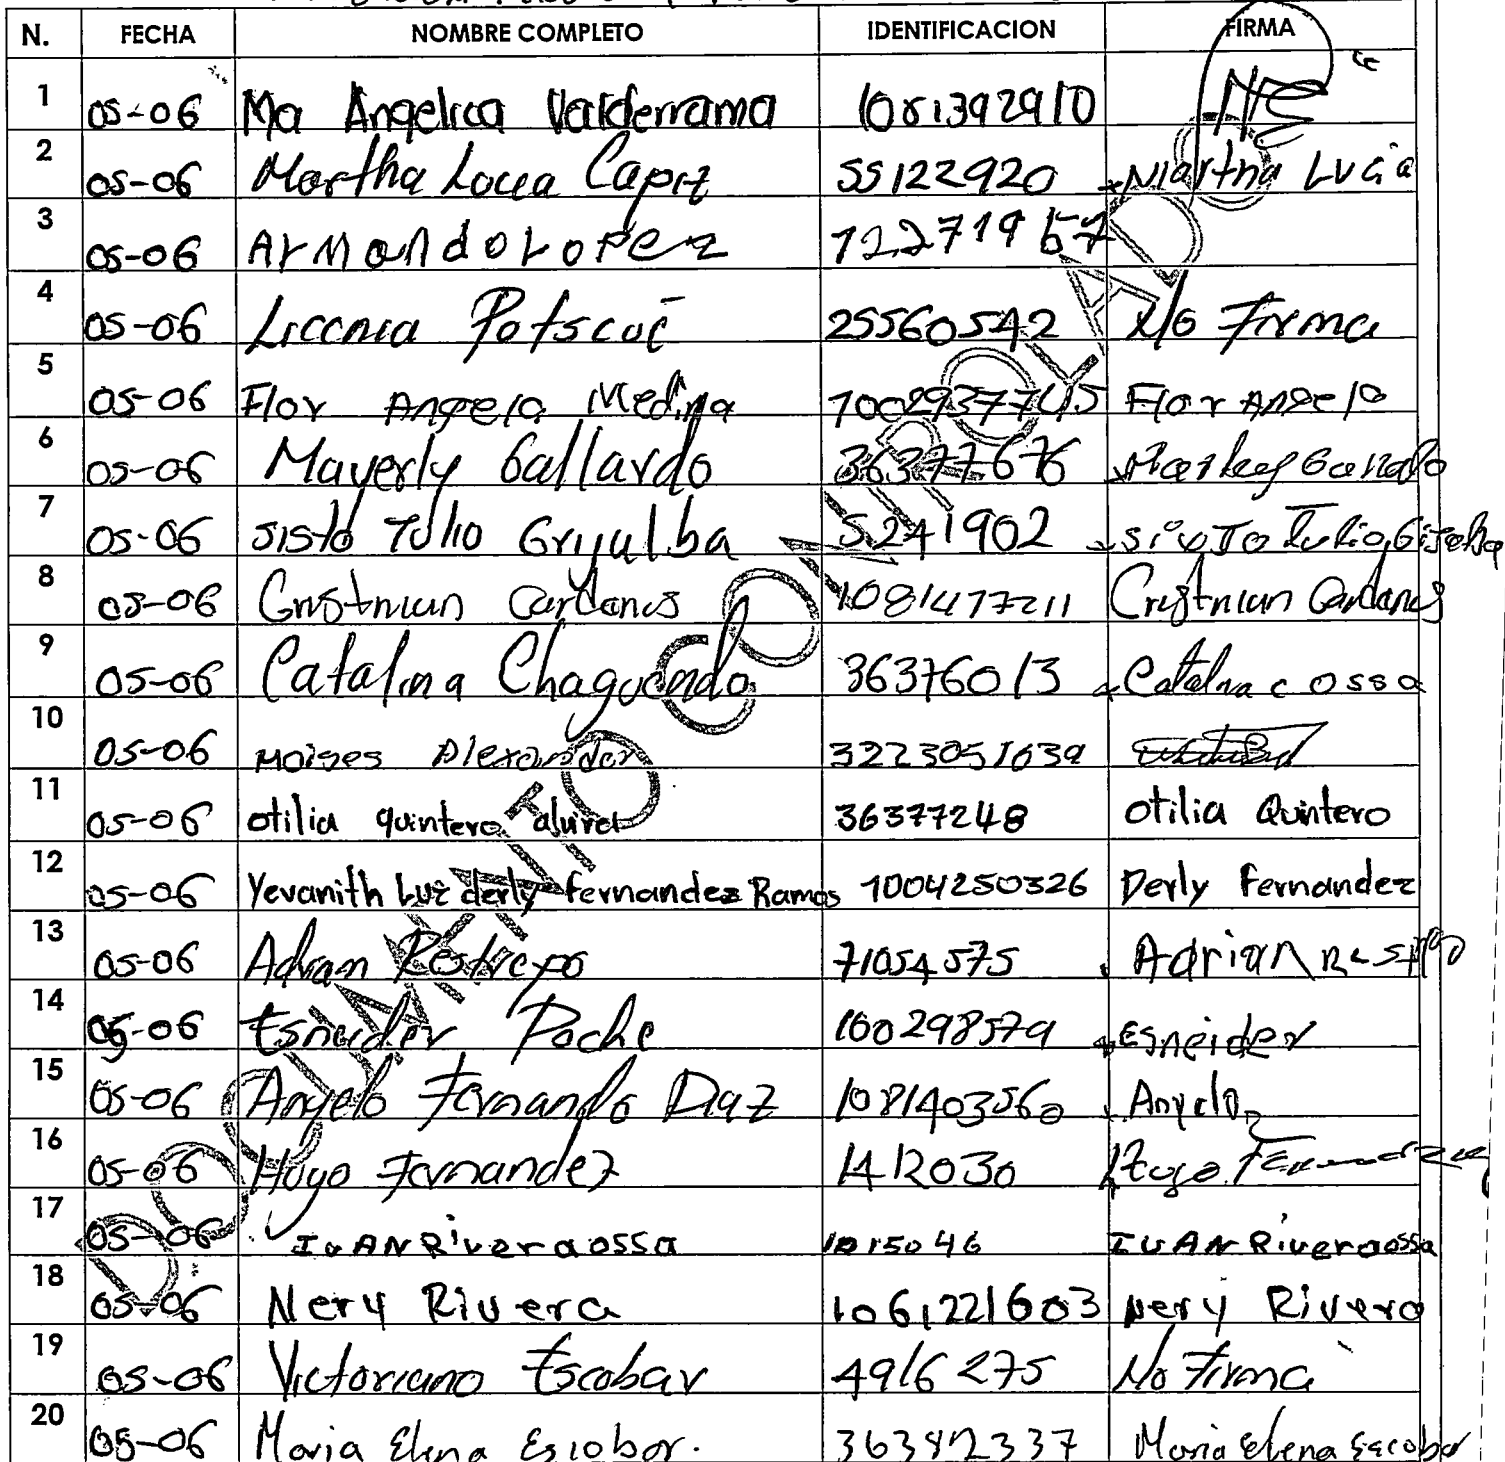 N. FECHA NOMBRE COMPLETO IDENTIFICACION FIRMA
1 05-06 Ma Angelica Valderrama 1081392910
2 05-06 Martha Lucia Capiz 55122920 Martha Lucia
3 05-06 Armando Lopez 12271967
4 05-06 Liccnia Potscue 25560542 No Firma
5 05-06 Flor Angela Medina Flor Angela
6 05-06 Mayerly Gallardo 36377676
7 05-06 sisto Tulio Grijulba 5241902 sixto Tulio
8 05-06 Cristnian Cardenas 1081477211 Cristnian Cardenas
9 05-06 Catalina Chaguendo 36376013 Catalna c ossa
10 05-06 Moises Alexander 3223051639
11 05-06 otilia quintero 36377248 otilia Quintero
12 05-06 Yevanith Luz derly fernandez Ramos 1004250326 Derly Fernandez
13 05-06 Adrian Restrepo 71054575 Adrian
14 05-06 Esneider Poche 100298579 Esneider
15 05-06 Angelo Fernando Diaz 1081403560 Angelo
16 05-06 Hugo Fernandez 1412030 Hugo
17 05-06 IvAN Rivera ossa 1015046 IvAN Rivera ossa
18 05-06 Nery Rivera 1061221603 Nery Rivera
19 05-06 Victoriano Escobar 4916275 No Firma
20 05-06 Maria Elena Escobar. 363842337 Maria Elena Escobar
DOCUMENTO CONTROLADO